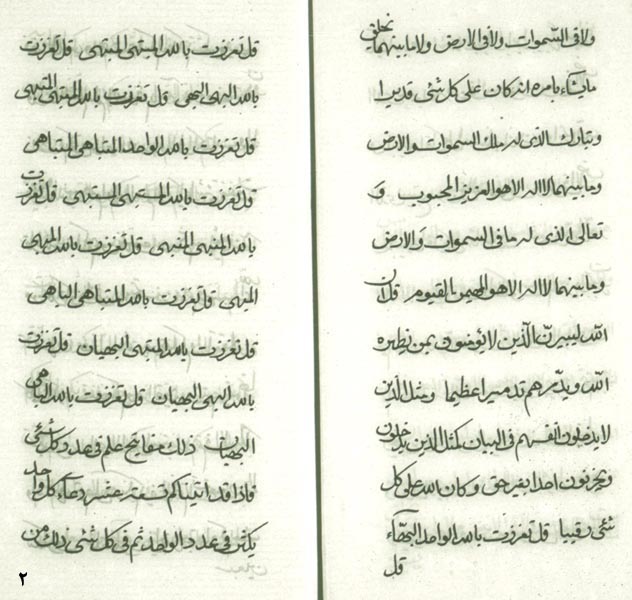 ولا فى السموات ولا فى الارض ولا ما بينهما يخلق
ما يشاء بامره انه كان على كل شئ قديرا
وتبارك الذى له ملك السموات والارض
وما بينهما لا اله الا هو العزيز المحبوب و
تعالى الذى له ما فى السموات والارض
وما بينهما لا اله الا هو المهيمن القيوم قل ان
الله ليبيرن الذين لا يؤمنون بمن يظهره
الله ويدمرهم تدميرا عظيما ومثل الذين
لا يدخلون انفسهم فى البيان كمثل الذين يدخلون
ويحزنون احدا بغير حق وكان الله على كل
شئ رقيبا قل تعززت بالله الواحد البهاء
قل
قل تعززت بالله المبتهى المبتهى قل تعززت
بالله البهى البهى قل تعززت بالله المبتهى المبتهى
قل تعززت بالله الواحد المتباهى المتباهى
قل تعززت بالله المستبهى المستبهى قل تعززت
بالله المنبهى المنبهى قل تعززت بالله المبهى
المبهى قل تعززت بالله المتباهى الباهى
قل تعززت بالله المبتهى البهيان قل تعززت
بالله البهى البهيان قل تعززت بالله الباهى
البهيان ذلك مفاتيح علم فى عدد كل شئ
فاذا قد اتيناكم تسعة عشر دعاء كل واحد
يكثر فى عدد الواحد ثم فى كل شئ ذلك من
٢